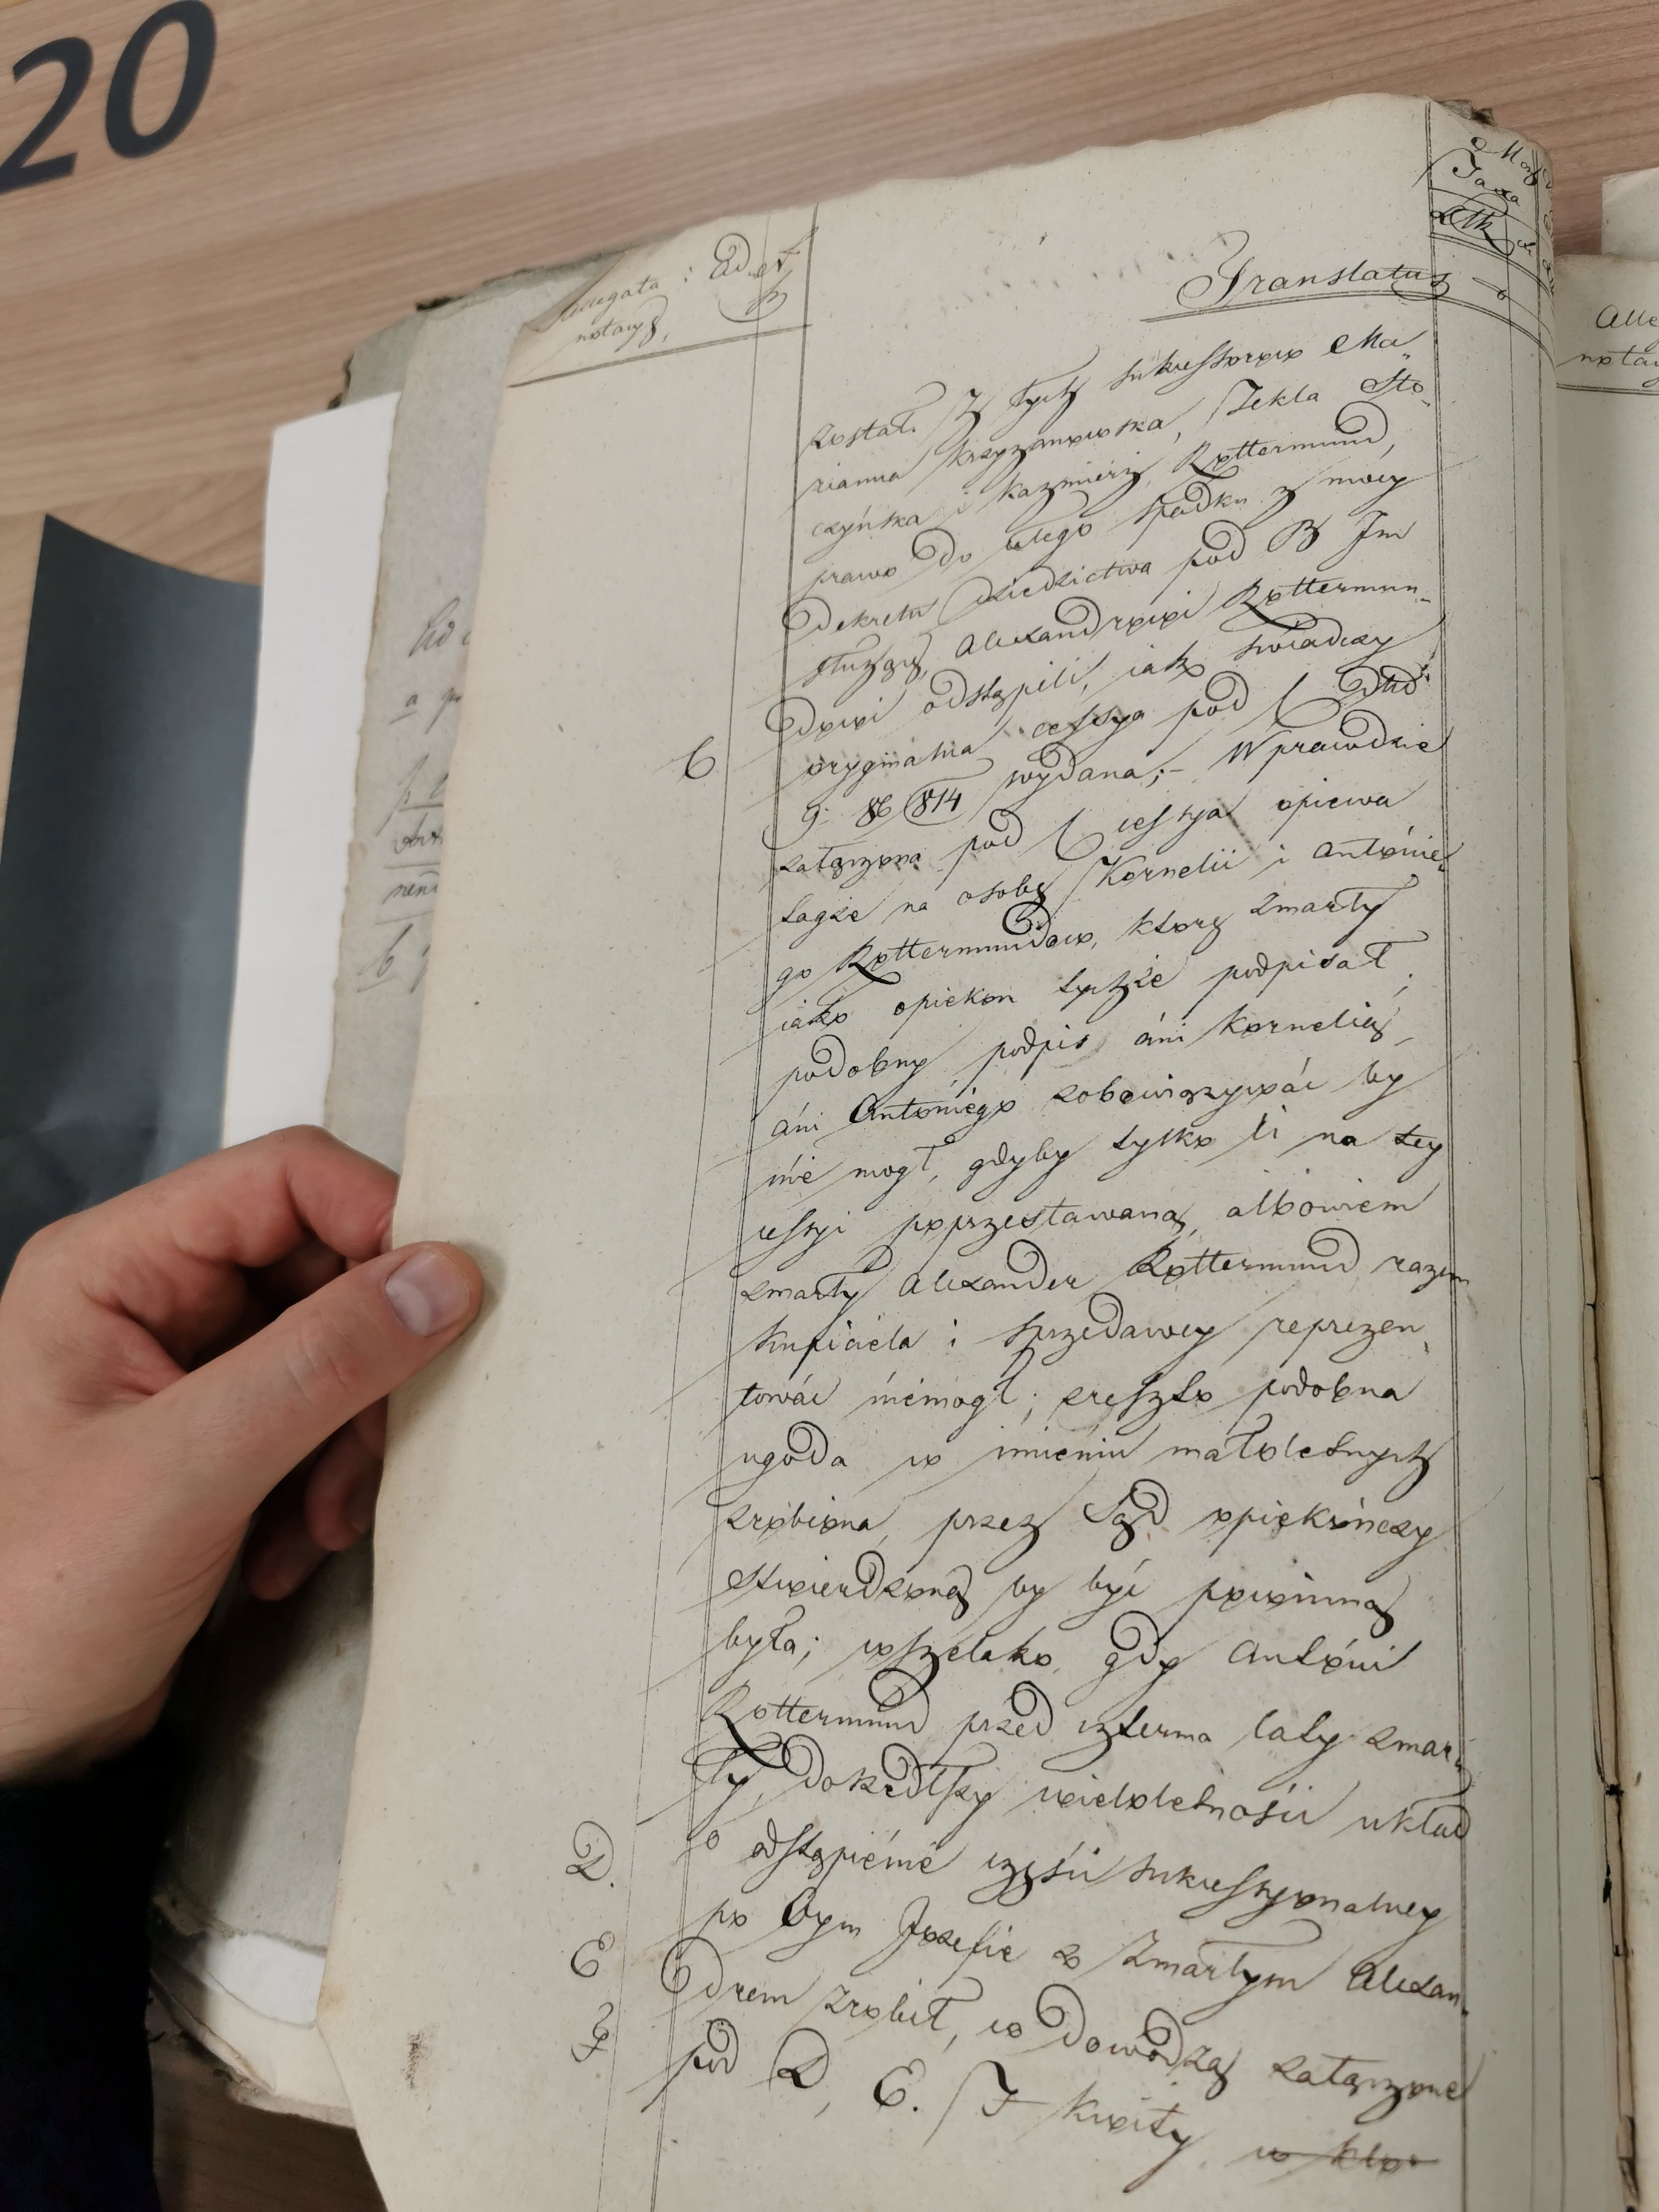 20
Allegata: Ad et
notaty
Translatus
został. Z tych sukcessorow Ma-
rianna Krzyzanowska, Tekla Sto-
czyńska i Kazmierz Rottermund,
prawo do całego spadku z mocy
Dekretu dziedzictwa pod B Im
służące, Alexandrowi Rottermun-
dowi odstąpili, iako swiadczy
oryginalna cessya pod C
C
9. 86 814 wydana;- Wprawdzie
załączona pod C cessya opiewa
także na osobę Kornelii i Antonie-
go Rottermundow, którą zmarły
iako opiekun tychże podpisał,
podobny podpis áni Kornelię,
áni Antoniego zobowiązywác by
nie mogł, gdyby tylko li na tey
cessyi poprzestawaną, albowiem
zmarły Alexander Rottermund razem
kupiciela i sprzedawcy reprezen-
towác niemogł; zresztą podobna
ugoda w imieniu małoletnych
zrobiona, przez Sąd opiekónczy
stwierdzoną by być powinną
była; wszelako gdy Antóni
Rottermund przed czterma laty zmar-
ły, doszedłszy wieloletnosci układ
D.
o odstąpienie częsci sukcessyonalney
po Oycu Jozefie z Zmarłym Alexan-
E
drem zrobił, w dowodzą załączone
F
pod D, E. F kwity, w kto-
Alle
nota